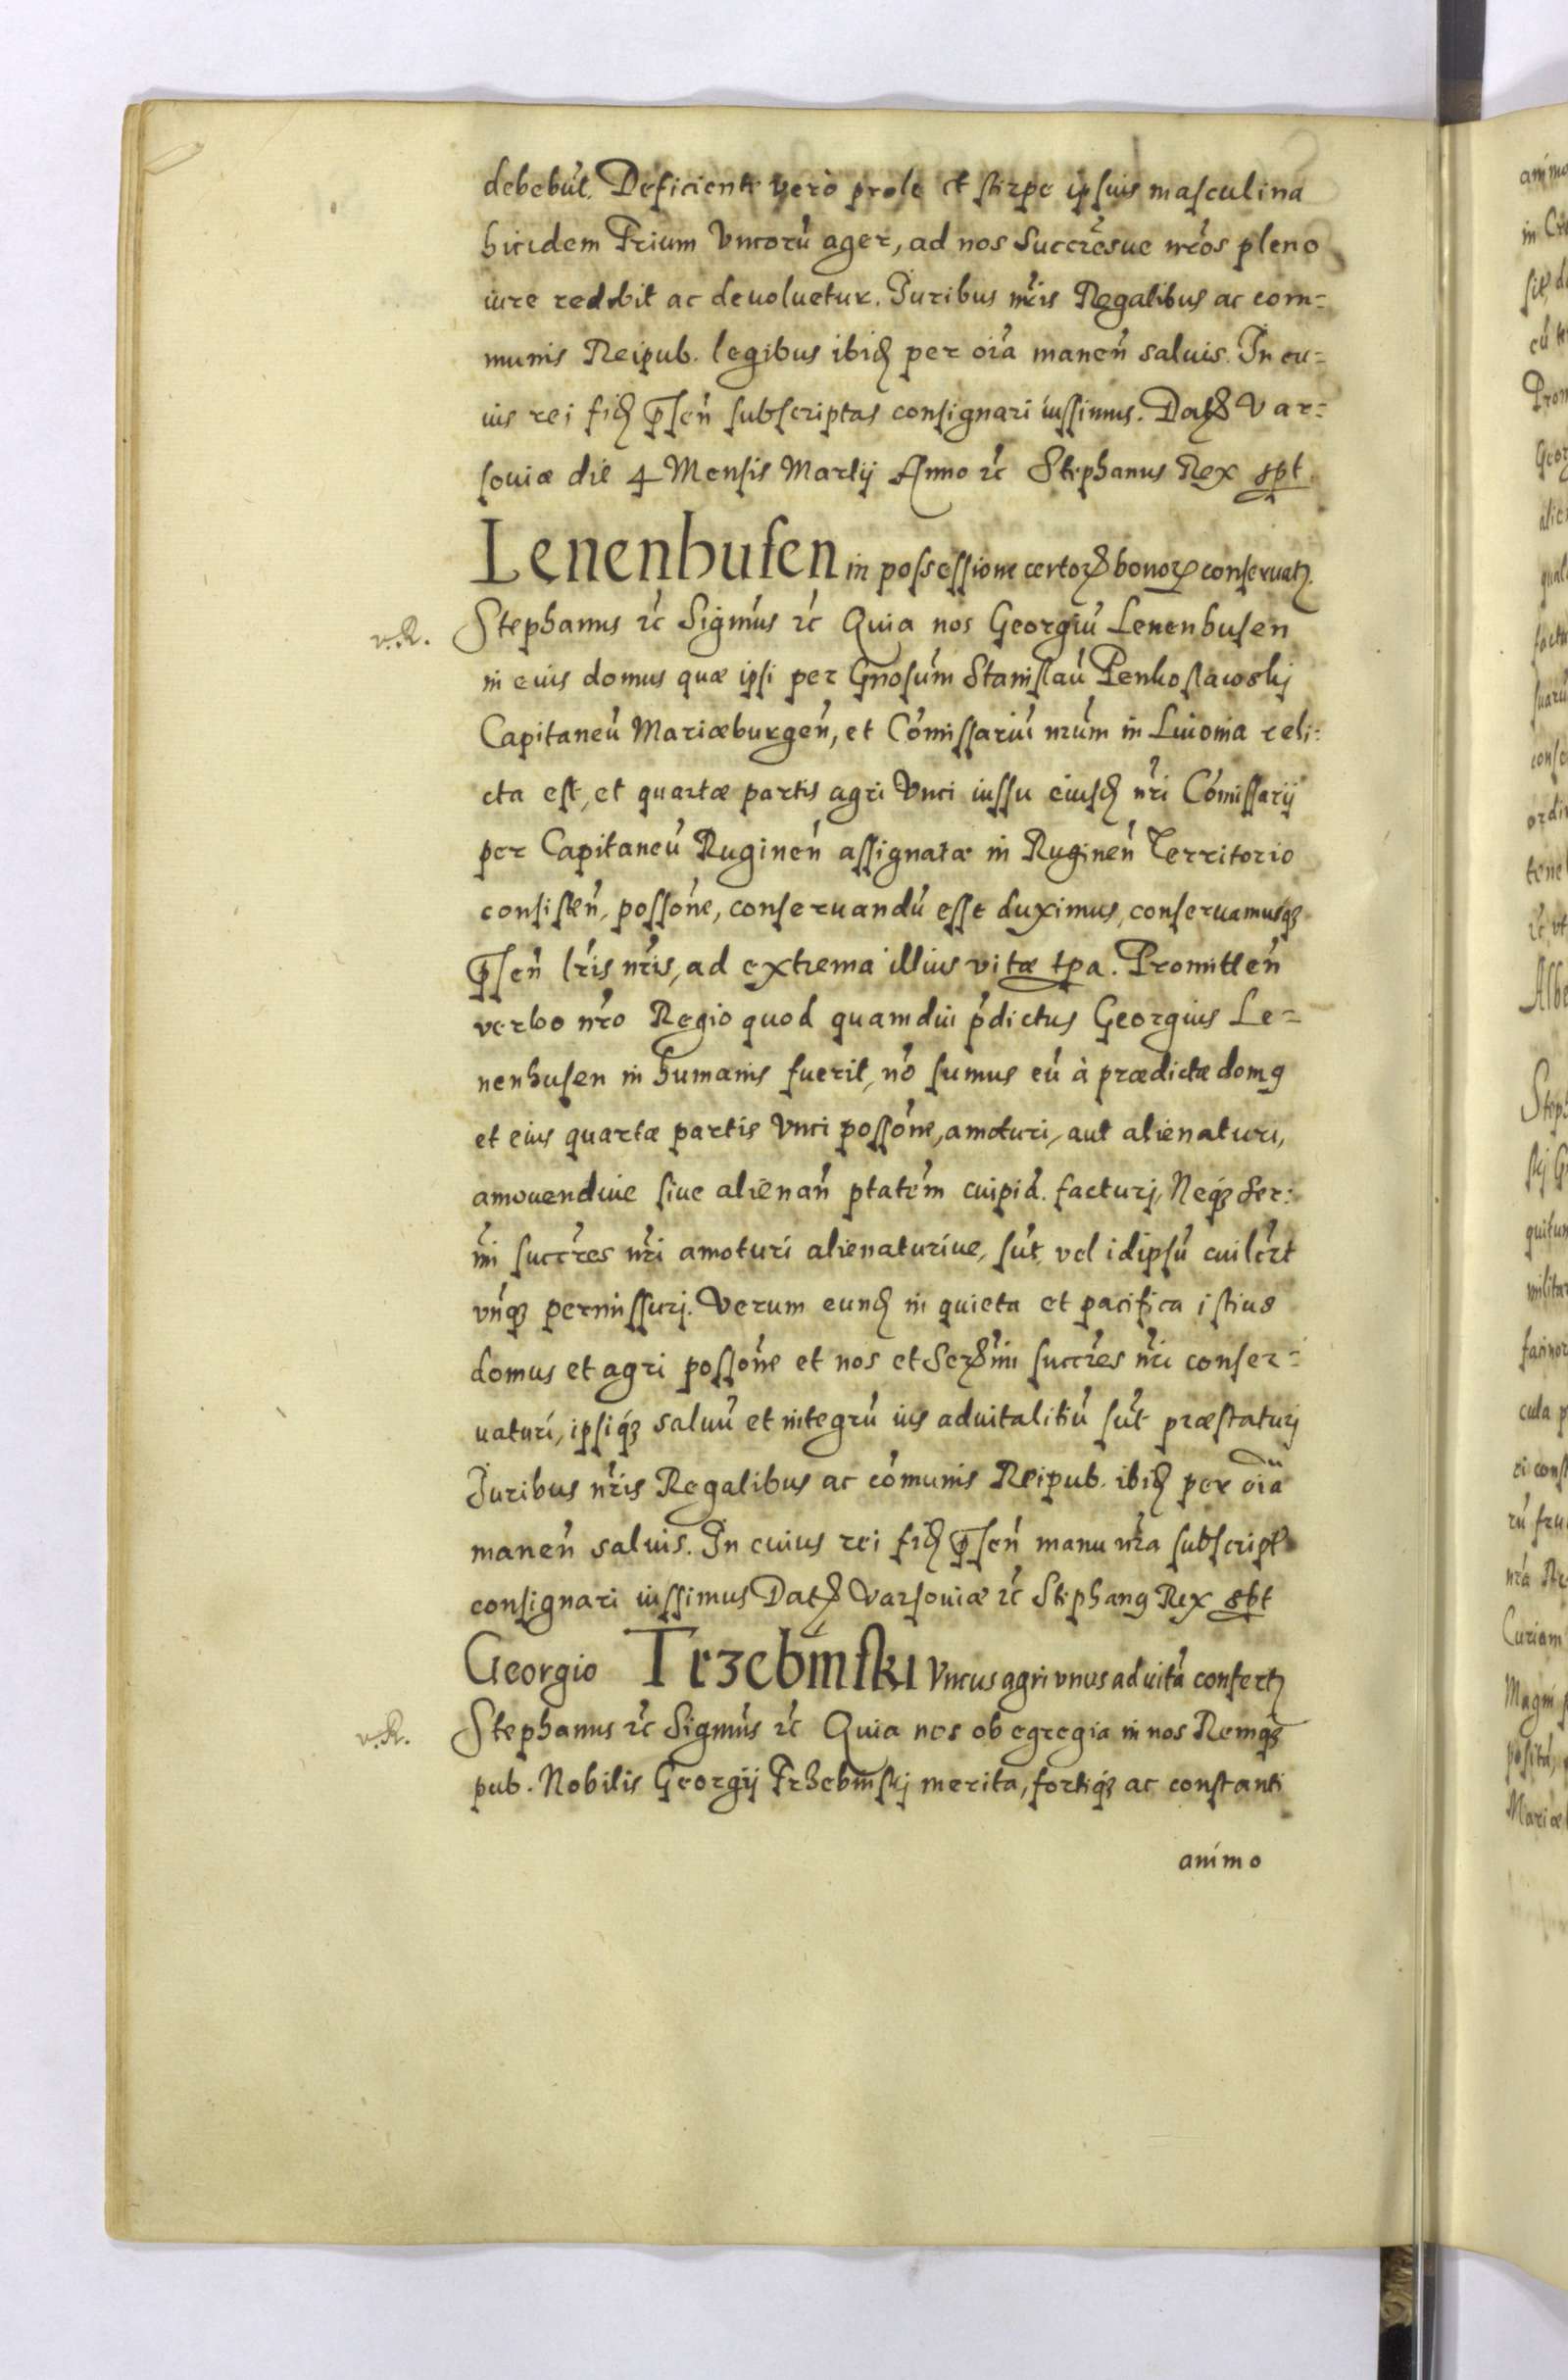 debebūt. Deficiente verò prole et stirpe ipsius masculina
hicidem Trium Vncorū ager, ad nos Succr̄esue nr̄os pleno
iure redibit ac deuoluetur. Juribus nr̄is Regalibus ac com=
munis Reipub. legibus ibid̨ per oīa manen̄ saluis. In cu=
ius rei fid̨ p̄sen̄ subscriptas consignari iussimus. Dat̨ Var=
souiæ die 4 Mensis Martij Anno ꝛc̄ Stephanus Rex spt.
Lenenhusen in possessione certoꝝ bonoꝝ conseruatꝫ.
v.R. Stephanus ꝛc̄ Sigm̄us ꝛc̄ Quia nos Georgiū Lenenhusen
in eius domus quæ ipsi per Gnōsum Stanislaū Penkoslawskj
Capitaneū Mariæburgen̄, et Com̄issariū nr̄um in Liuonia reli=
cta est, et quartæ partis agri Vnci iussu eiusd̨ nr̄i Com̄issarij
per Capitaneū Ruginen̄ assignatæ in Ruginen̄ Territorio
consisten̄, possōne, conseruandū esse duximus, conseruamusqꝫ
p̄sen̄ lr̄is nr̄is, ad extrema illius vitæ tp̄a. Promitten̄
verbo nr̄o Regio quod quamdiu p̄dictus Georgius Le=
nenhusen in humanis fuerit, nō sumus eū à prædictæ domꝰ
et eius quartæ partis Vnci possōne, amoturi, aut alienaturi,
amouendiue siue alienan̄ ptatēm cuipiā. facturj, Neqꝫ Ser=
m̄i succr̄es nr̄i amoturi alienaturiue, sūt, vel idipsū cuilērt
vn̄qꝫ permissurj. Verum eund̨ in quieta et pacifica istius
domus et agri possōne et nos et Serm̄i succr̄es nr̄i conser=
uaturi, ipsiqꝫ saluū et integrū ius aduitalitiū sūt præstaturj
Juribus nr̄is Regalibus ac com̄unis Reipub. ibid̨ per oīa
manen̄ saluis. In cuius rei fid̨ p̄sen̄ manu nr̄a subscript̨
consignari iussimus Dat̨ Varsouiæ ꝛc̄ Stephanꝰ Rex spt
Georgio Trzebinski Vncus agri vnus ad uitā confertꝫ
v.R. Stephanus ꝛc̄ Sigm̄us ꝛc̄ Quia nos ob egregia in nos Remqꝫ
pub. Nobilis Georgij Trzebinskj merita, fortiqꝫ ac constanti
animo